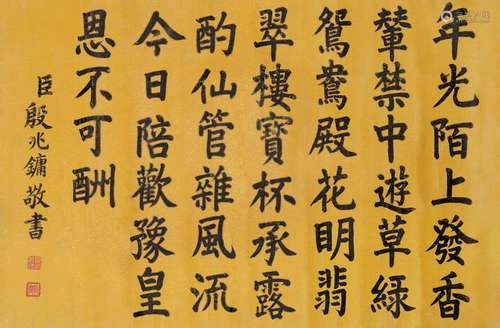 年光陌上發香
輦禁中遊草緑
鴛鴦殿花眀翡
翠樓寶杯承露
酌仙管雜風流
今日陪歡豫皇
恩不可酬
臣殷兆鏞敬書